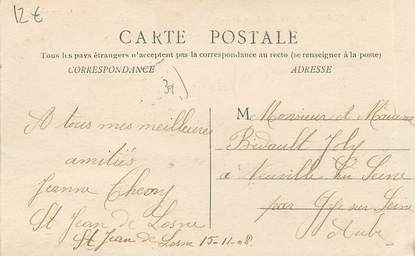 12€
CARTE POSTALE
Tous les pays étrangers n'acceptent pas la correspondance au recto (se renseigner à la poste)
CORRESPONDANCE
ADRESSE
A tous mes meilleures
amitiés
Jeanne
St Jean de Losne
St Jean de Losne 15-11-08.
M Monsieur et Madame
Bidault Joly
à Neuville sur Seine
par Gyé sur Seine
Aube